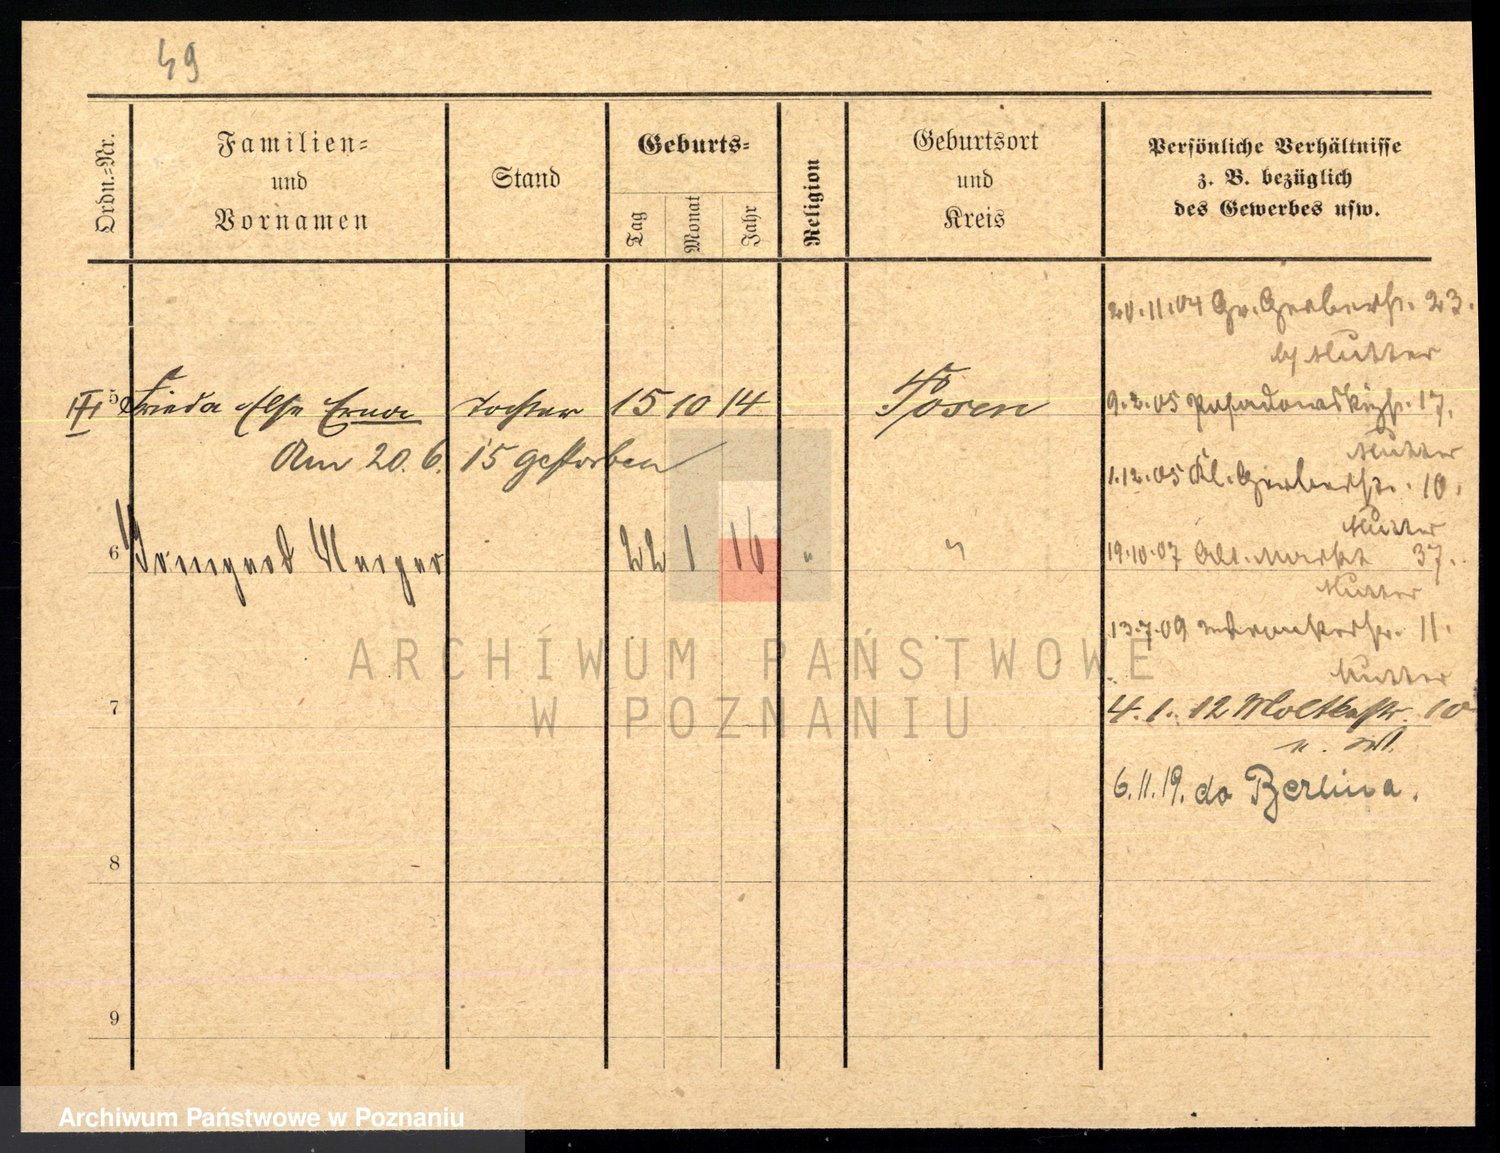 49
Ordn.-Nr.
Familien-
und
Vornamen
Stand
Geburts-
Tag
Monat
Jahr
Religion
Geburtsort
und
Kreis
Persönliche Verhältnisse
z. B. bezüglich
des Gewerbes usw.
20.11.04 Gr. Gerberstr. 23.
b/ Mutter
III 5 Frieda Else Erna Tochter 15 10 14 Posen
9.2.05 17.
Mutter
Am 20. 6. 15 gestorben
1.12.05 Kl. Gerberstr. 10.
Mutter
6 22 1 16 " "
19.10.07 Alt. Markt 37.
Mutter
13.7.09 11.
Mutter
7
4. 1. 12 Moltkestr. 10
6.11.19. do Berlina.
8
9
ARCHIWUM PAŃSTWOWE
W POZNANIU
Archiwum Państwowe w Poznaniu